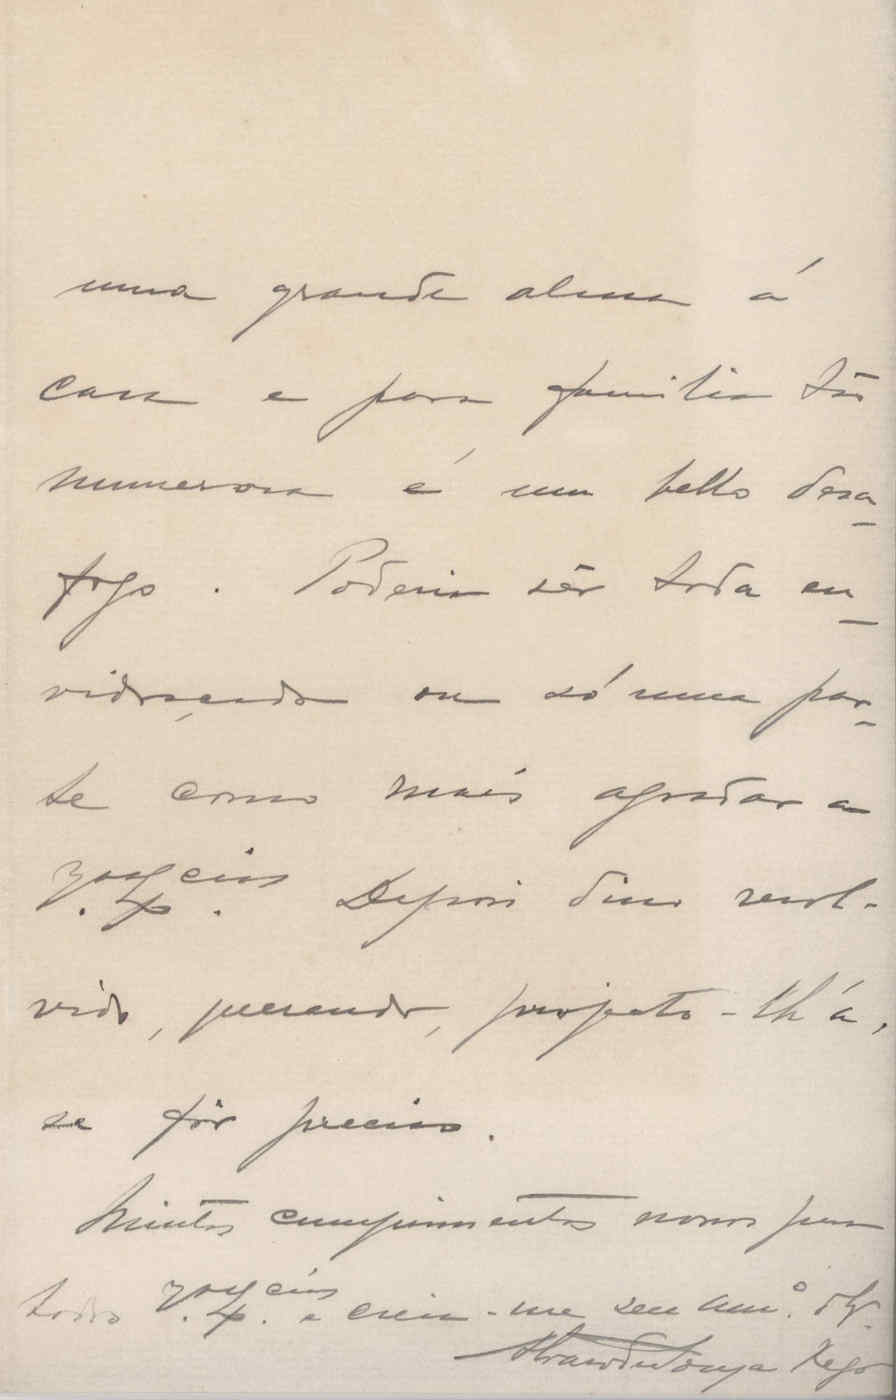 uma grande alma á
casa e para familia tão
numerosa é um bello desa-
fogo. Poderia sêr toda en-
vidraçada ou só uma par-
te como mais agradar a
V. Ex.cias Depois disso resol-
vido, querendo, projecto-lh'a,
se fôr preciso.
Muitos cumprimentos nossos para
todos V. Ex.cias e creia-me seu am.º